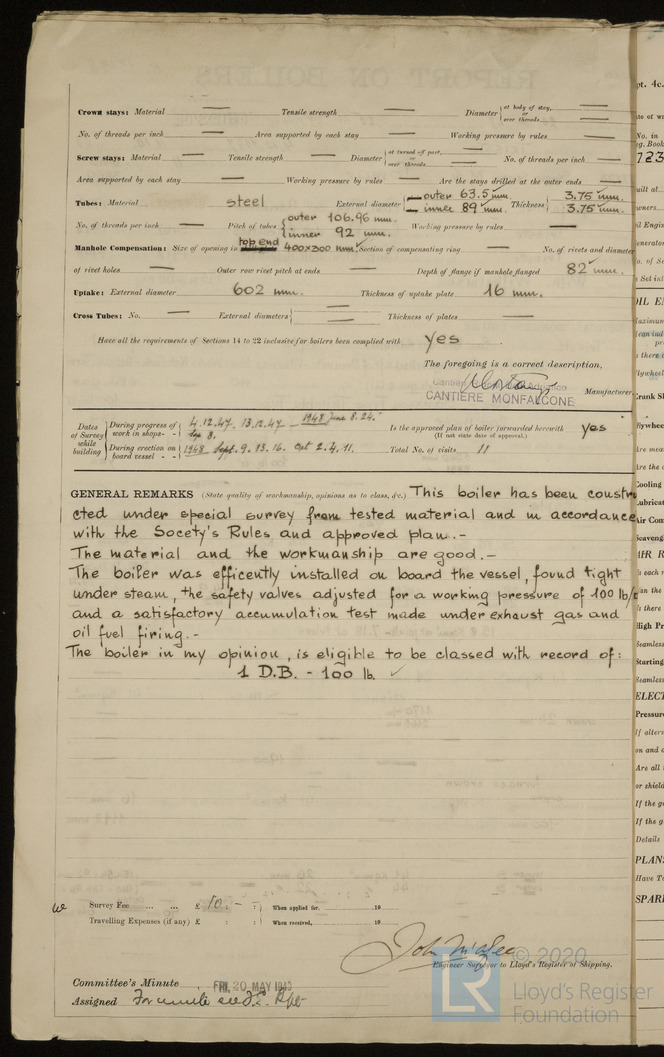 Crown stays: Material — Tensile strength — Diameter { at body of stay, — or over threads —
No. of threads per inch — Area supported by each stay — Working pressure by rules —
Screw stays: Material — Tensile strength — Diameter { at turned off part, — or over threads — No. of threads per inch —
Area supported by each stay — Working pressure by rules — Are the stays drilled at the outer ends —
Tubes: Material steel External diameter { outer 63.5 mm. inner 89 mm. Thickness { 3.75 mm. 3.75 mm.
No. of threads per inch — Pitch of tubes { outer 106.96 mm. inner 92 mm. Working pressure by rules —
Manhole Compensation: Size of opening in top end 400x300 mm. Section of compensating ring — No. of rivets and diameter
of rivet holes — Outer row rivet pitch at ends — Depth of flange if manhole flanged 82 mm.
Uptake: External diameter 602 mm. Thickness of uptake plate 16 mm.
Cross Tubes: No. — External diameters { — Thickness of plates —
Have all the requirements of Sections 14 to 22 inclusive for boilers been complied with yes
The foregoing is a correct description,
CANTIERE MONFALCONE Manufacturer
Dates of Survey while building { During progress of work in shops - - { 4.12.47. 13.12.47 — 1948 June 8. 24. Sep 8.
Is the approved plan of boiler forwarded herewith yes
(If not state date of approval.)
During erection on board vessel - - { 1948 Sept. 9. 13. 16. Oct 2. 4. 11. Total No. of visits 11
GENERAL REMARKS (State quality of workmanship, opinions as to class, &c.) This boiler has been constru
cted under special survey from tested material and in accordance
with the Socety's Rules and approved plan.-
The material and the workmanship are good.-
The boiler was efficently installed on board the vessel, found tight
under steam, the safety valves adjusted for a working pressure of 100 lb/
and a satisfactory accumulation test made under exhaust gas and
oil fuel firing.-
The boiler in my opinion, is eligible to be classed with record of:
1 D.B. - 100 lb.
Survey Fee ... ... £ 10 : - : When applied for, 19
Travelling Expenses (if any) £ : : When received, 19
Engineer Surveyor to Lloyd's Register of Shipping.
Committee's Minute FRI. 20 MAY
Assigned
© 2020
LR
Lloyd's Register
Foundation
pt. 4c.
No. in
723